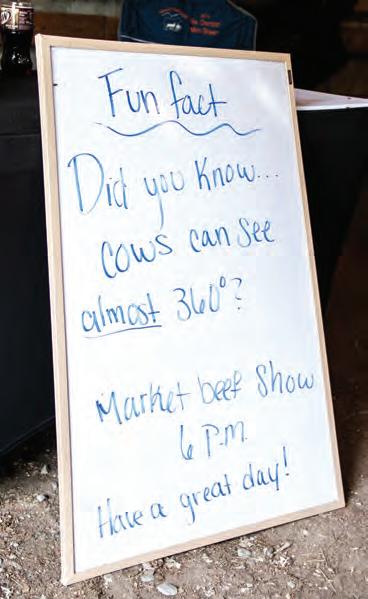 Fun fact
Did you know...
cows can see
almost 360°?
Market beef Show
6 P.M.
Have a great day!